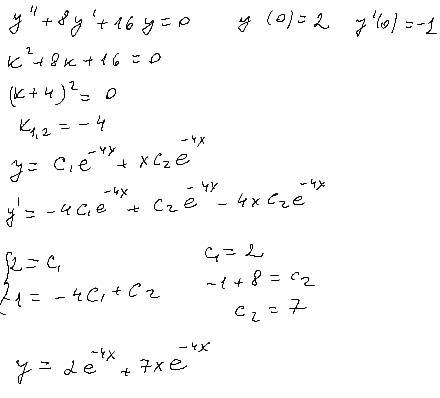 y'' + 8y' + 16y = 0    y (0) = 2    y'(0) = -1
k² + 8k + 16 = 0
(k + 4)² = 0
k₁,₂ = -4
y = C₁e^(-4x) + xC₂e^(-4x)
y' = -4C₁e^(-4x) + C₂e^(-4x) - 4xC₂e^(-4x)
{2 = C₁    C₁ = 2
-1 = -4C₁ + C₂    -1 + 8 = C₂
C₂ = 7
y = 2e^(-4x) + 7xe^(-4x)